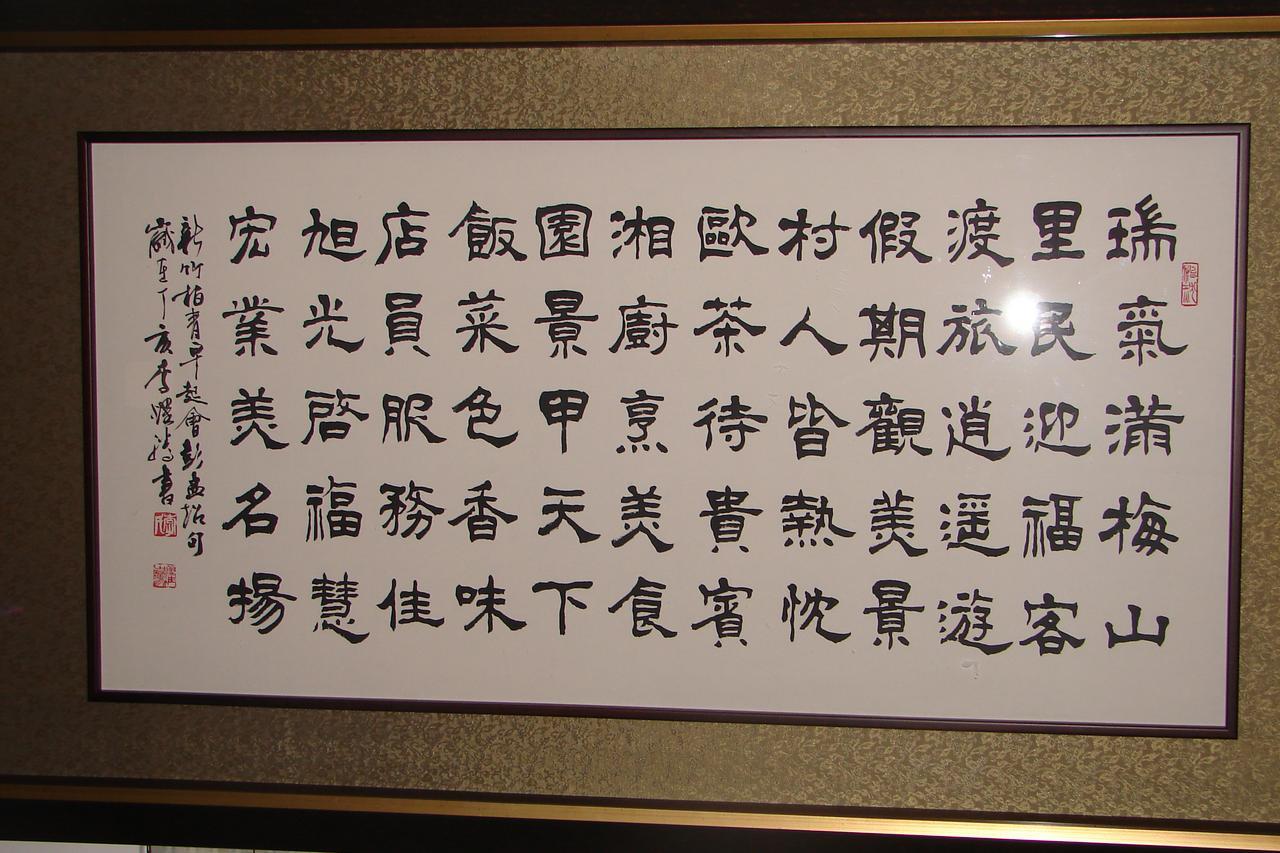 瑞氣滿梅山
里民迎福客
渡旅逍遥游
假期觀美景
村人皆熱忱
歐茶待貴賓
湘廚烹美食
園景甲天下
飯菜色香味
店員服務佳
旭光啓福慧
宏業美名揚
新竹柏青早起會彭孟紹句
歲在丁亥李燿鴻書